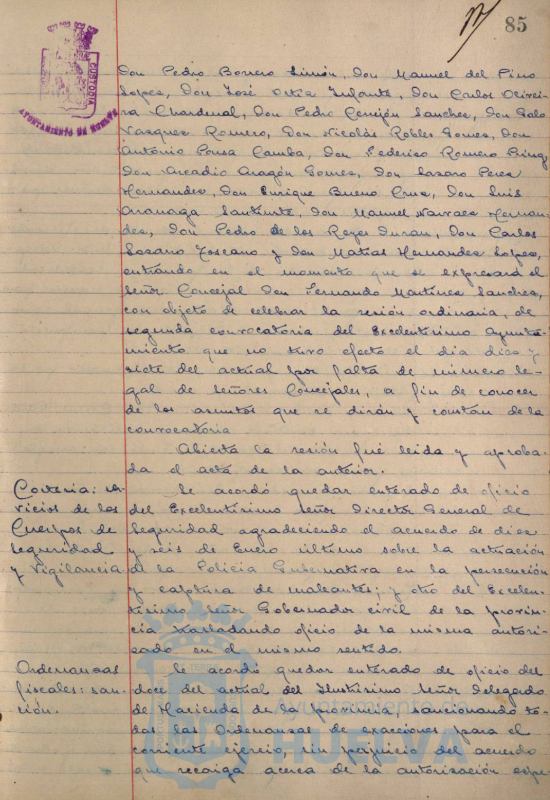 85
CUSTODIA
AYUNTAMIENTO DE
Don Pedro Borrero Simón, Don Manuel del Pino
Lopes, Don José Ortiz Infante, Don Carlos Olivei-
ra Chardenal, Don Pedro Cerrejón Sanches, Don Galo
Vazques Romero, Don Nicolás Robles Gomes, Don
Antonio Ponsa Camba, Don Federico Romero
Don Arcadio Aragón Gomes, Don Lazaro Peres
Hernandes, Don Enrique Bueno Crus, Don Luis
Aranaga Don Manuel Narvaes Hernan-
des, Don Pedro de los Reyes Duran, Don Carlos
Lozano Toscano y Don Matias Hernandes Lopes,
entrando en el momento que se expresará el
señor Concejal Don Fernando Martines Sanches,
con objeto de celebrar la sesión ordinaria, de
segunda convocatoria del Excelentisimo Ayunta-
miento que no tuvo efecto el dia dies y
siete del actual por falta de número le-
gal de señores Concejales, a fin de conocer
de los asuntos que se dirán y constan de la
convocatoria
Abierta la sesión fué leida y aproba-
da el acta de la anterior.
Cortesia: ser-
vicios de los
Cuerpos de
Seguridad
y Vigilancia
Se acordó quedar enterado de oficio
del Excelentisimo Señor Director General de
Seguridad agradeciendo el acuerdo de dies
y seis de Enero último sobre la actuación
de la Policia Gubernativa en la persecución
y captura de maleantes; y otro del Excelen-
tisimo Señor Gobernador civil de la provin-
cia trasladando oficio de la misma autori-
dad en el mismo sentido.
Ordenanzas
fiscales: san-
ción.
Se acordó quedar enterado de oficio del
doce del actual del Ilustrisimo Señor Delegado
de Hacienda de la provincia, sancionando to-
das las Ordenanzas de exacciones para el
corriente ejercicio, sin perjuicio del acuerdo
que recaiga acerca de la autorización espe
Ayuntamiento de
HUELVA